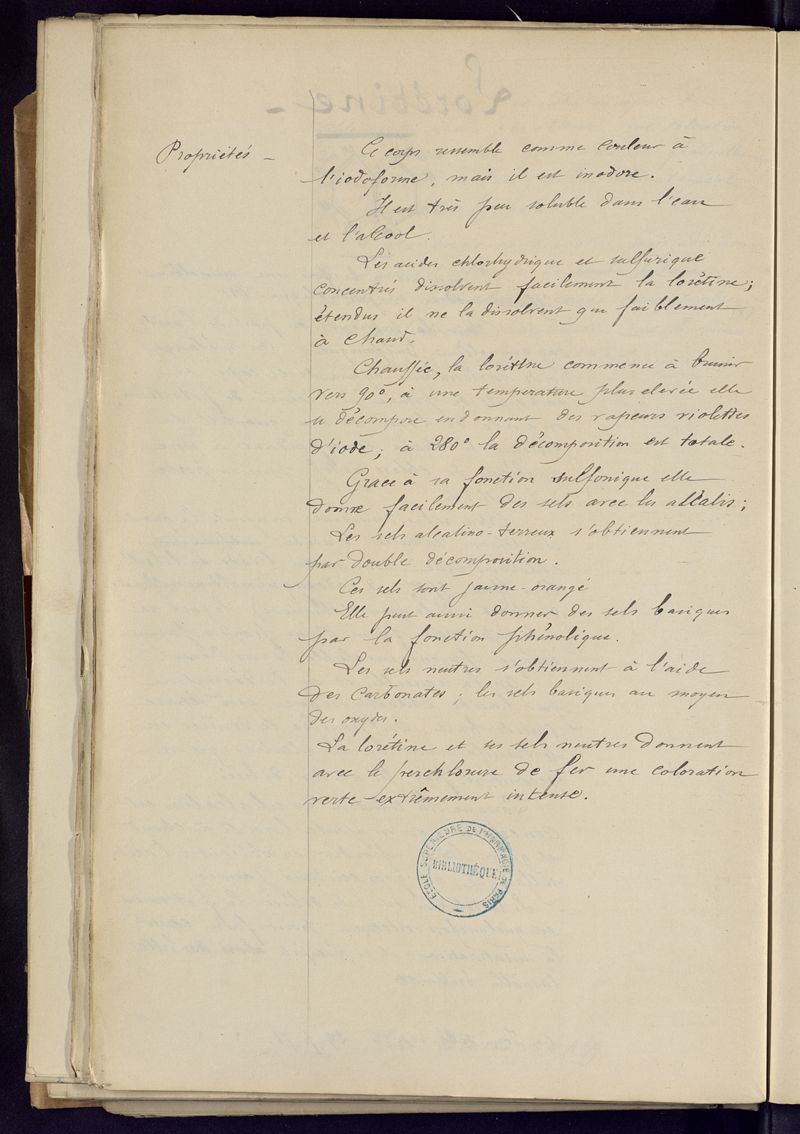 Propriétés -
Ce corps ressemble comme couleur à
l'iodoforme, mais il est inodore.
Il est très peu soluble dans l'eau
et l'alcool.
Les acides chlorhydrique et sulfurique
concentrés dissolvent facilement la lorétine;
étendus il ne la dissolvent que faiblement
à chaud.
Chauffée, la lorétine commence à brunir
vers 90°, à une temperature plus elevée elle
se décompose en donnant des vapeurs violettes
d'iode; à 280° la décomposition est totale.
Grace à sa fonction sulfonique elle
donne facilement des sels avec les alcalis;
Les sels alcalino-terreux s'obtiennent
par double décomposition.
Ces sels sont jaune-orangé
Elle peut aussi donner des sels basiques
par la fonction phénolique.
Les sels neutres s'obtiennent à l'aide
des carbonates; les sels basiques au moyen
des oxydes.
La lorétine et ses sels neutres donnent
avec le perchlorure de fer une coloration
verte extrêmement intense.
ÉCOLE SUPÉRIEURE DE PHARMACIE DE PARIS
BIBLIOTHÈQUE